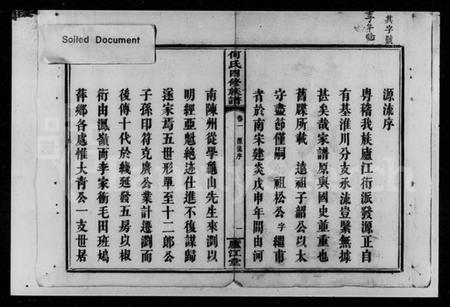 Soiled Document
其字號
源流序
粤稽我族廬江衍派發源正自
有基淮川分支承流豈緊無據
甚矣哉家譜原與國史並重也
舊牒所載 遠祖子韶公以太
守盡節僅嗣 祖松公字繼甫
者於南宋建炎戊申年間由河
何氏四修族譜
卷 源流序 一
廬江堂
南陳州從學龜山先生來瀏以
明經亞魁絶迹仕進不復謀歸
遂家焉五世形單至十二郎公
子孫印符克廣公業計遷瀏而
後傳十代於茲延發五房以椒
衍由渢嶺而李家衝毛田班鳩
萍鄉各處惟大青公一支世居